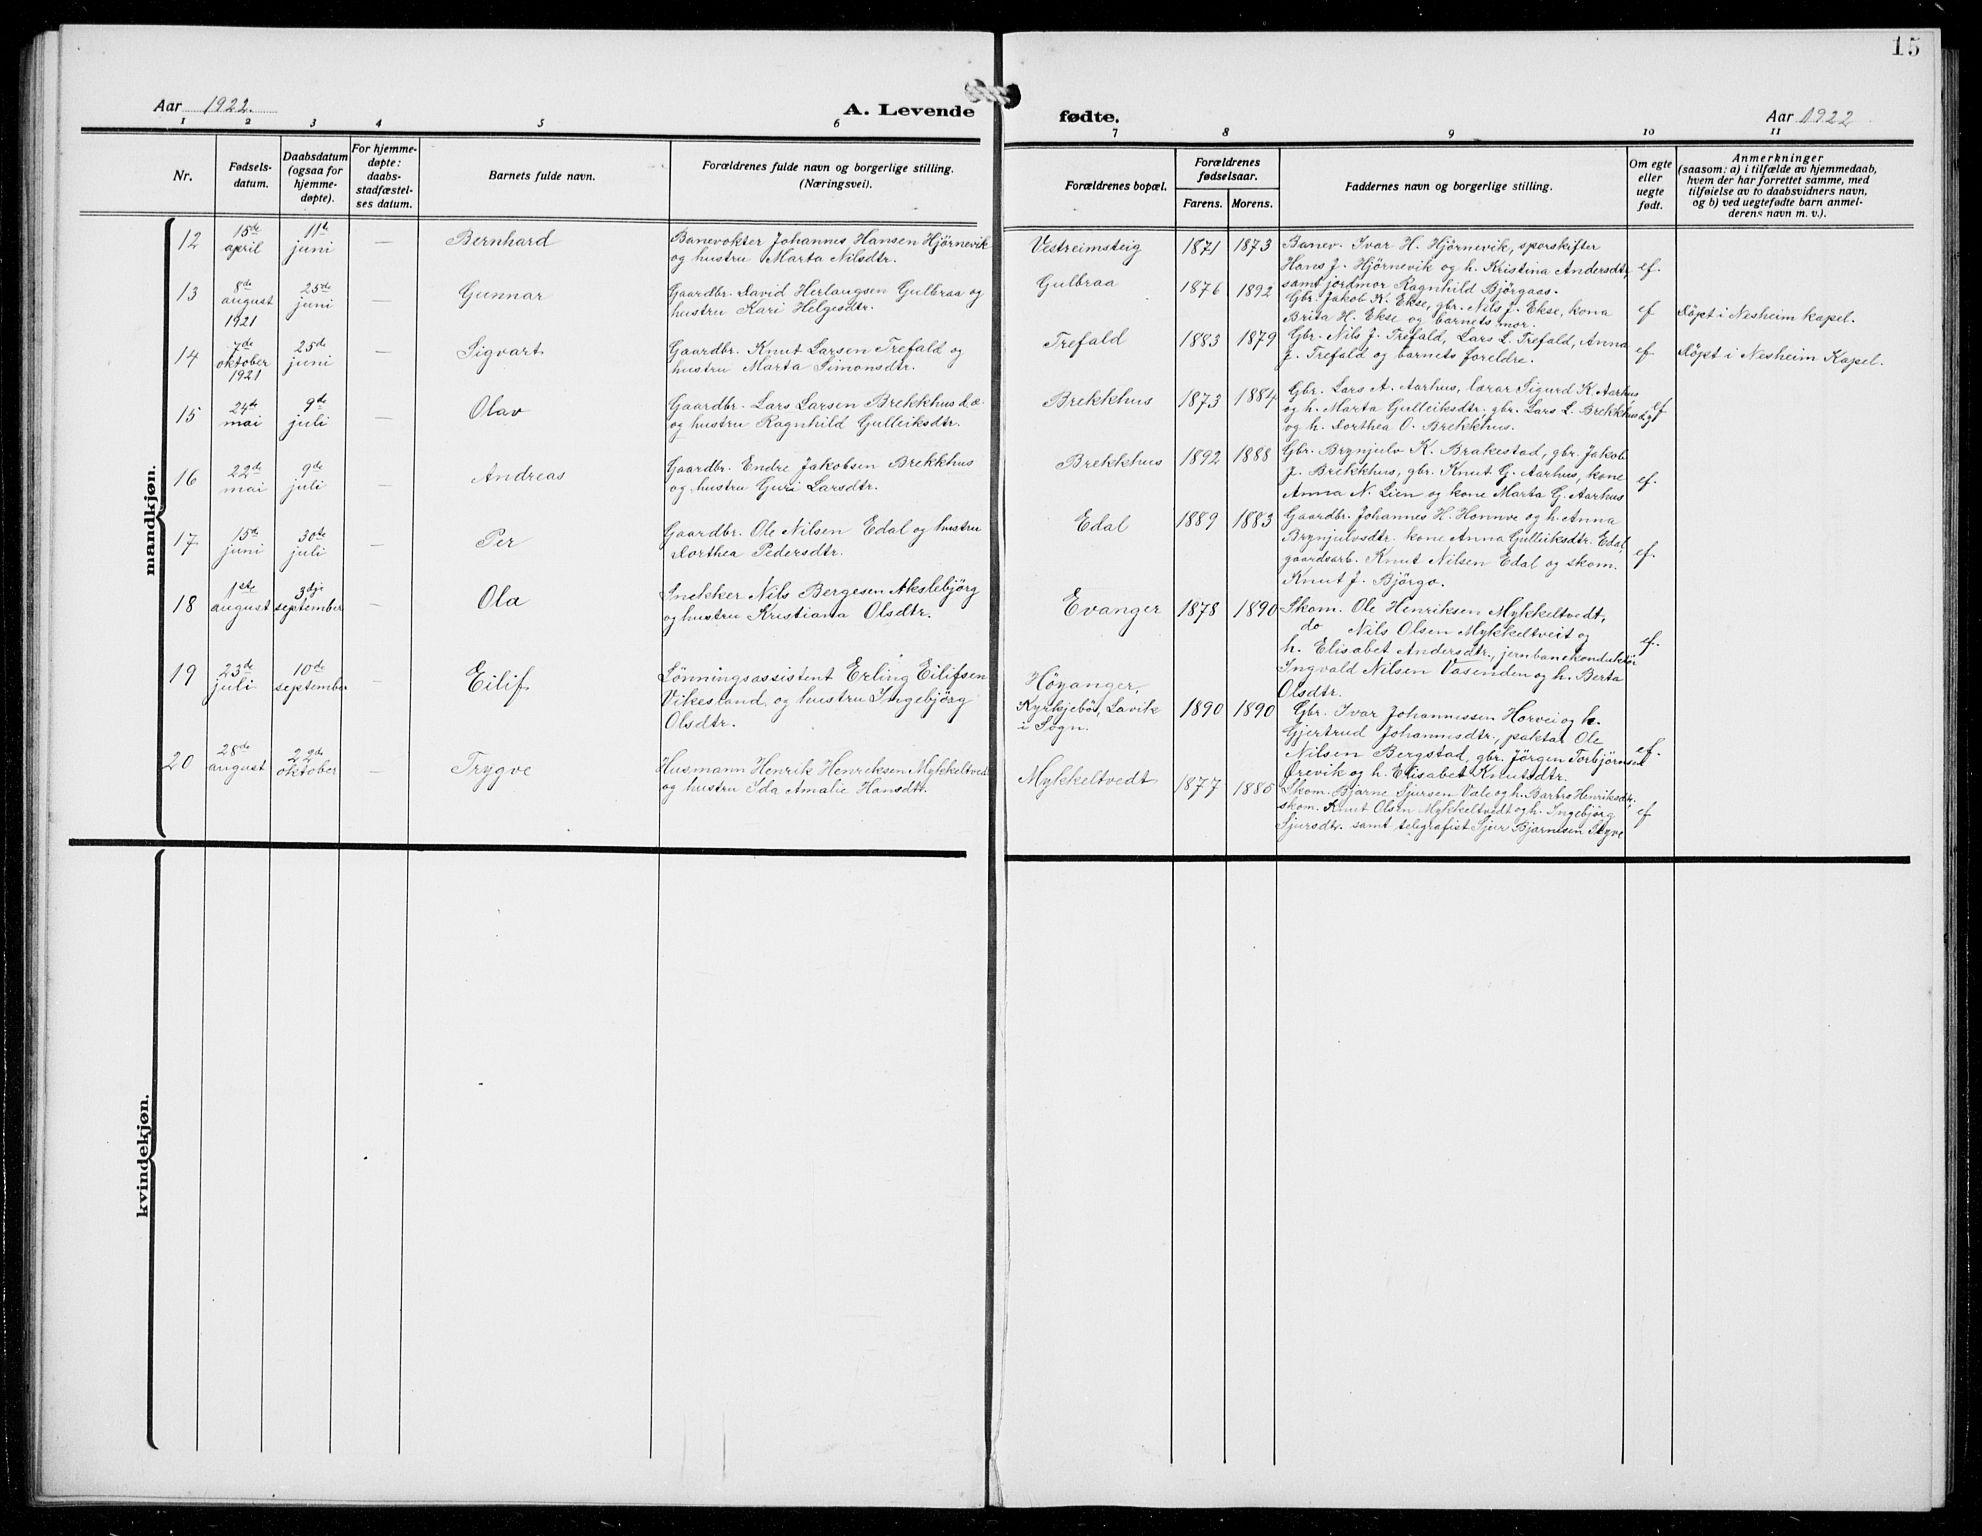 15
Aar 1922.
A. Levende
fødte.
Aar 1922
1 2 3 4 5 6 7 8 9 10 11
Nr.
Fødsels-
datum.
Daabsdatum
(ogsaa for
hjemme-
døpte).
For hjemme-
døpte:
daabs-
stadfæstel-
ses datum.
Barnets fulde navn.
Forældrenes fulde navn og borgerlige stilling.
(Næringsvei).
Forældrenes bopæl.
Forældrenes
fødselsaar.
Farens. Morens.
Faddernes navn og borgerlige stilling.
Om egte
eller
uegte
født.
Anmerkninger
(saasom: a) i tilfælde av hjemmedaab,
hvem der har forrettet samme, med
tilføielse av to daabsvidners navn,
og b) ved uegtefødte barn anmel-
derens navn m. v.).
mandkjøn.
12
15de
april
11te
juni
—
Bernhard
Banevokter Johannes Hansen Hjørnevik
og hustru Marta Nilsdtr.
Vestreimsteig
1871 1873
Banev. Ivar H. Hjørnevik, sporskifter
Hans J. Hjørnevik og h. Kristina Andersdtr,
samt jordmor Ragnhild Bjørgaas.
ef.
13
8de
august
1921
25de
juni
—
Gunnar
Gaardbr. David Herlaugsen Gulbraa og
hustru Kari Helgesdtr.
Gulbraa
1876 1892
Gbr. Jakob K. Ekse, gbr. Nils J. Ekse, kona
Brita H. Ekse og barnets mor.
ef
Döpt i Nesheim kapel.
14
7de
oktober
1921
25de
juni
—
Sigvart
Gaardbr. Knut Larsen Trefald og
hustru Marta Simonsdtr.
Trefald
1883 1879
Gbr. Nils J. Trefald, Lars L. Trefald, Anna
J. Trefald og barnets foreldre.
ef.
Döpt i Nesheim Kapel.
15
24de
mai
9de
juli
—
Olav
Gaardbr. Lars Larsen Brekkhus d.æ.
og hustru Ragnhild Gulleiksdtr.
Brekkhus
1873 1884
Gbr. Lars A. Aarhus, lærar Sigurd K. Aarhus
og h. Marta Gulleiksdtr. gbr. Lars L. Brekkhus d.y.
og h. Dorthea O. Brekkhus.
ef
16
22de
mai
9de
juli
—
Andreas
Gaardbr. Endre Jakobsen Brekkhus
og hustru Guri Larsdtr.
Brekkhus
1892 1888
Gbr. Brynjulv K. Brakestad, gbr. Jakob
J. Brekkhus, gbr. Knut G. Aarhus, kone
Anna N. Lien og kone Marta G. Aarhus
ef.
17
15de
juni
30te
juli
—
Per
Gaardbr. Ole Nilsen Edal og hustru
Dorthea Pedersdtr.
Edal
1889 1883
Gaardbr. Johannes H. Honnve og h. Anna
Brynjulvsdtr. kone Anna Gulleiksdtr. Edal,
gaardsarb. Knut Nilsen Edal og skom.
Knut J. Björgo.
ef.
18
1ste
august
3dje
september
—
Ola
Snekker Nils Bergesen Akslebjörg
og hustru Kristiana Olsdtr.
Evanger
1878 1890
Skom. Ole Henriksen Mykkeltvedt,
do Nils Olsen Mykkeltveit og
h. Elisabet Andersdtr., jernbanekonduktør
Ingvald Nilsen Vasenden og h. Berta
Olsdtr.
ef.
19
23de
juli
10de
september
—
Eilif
Lønningsassistent Erling Eilifsen
Vikesland, og hustru Ingebjörg
Olsdtr.
Höyanger,
Kyrkjebö, Lavik
i Sogn.
1890 1890
Gbr. Ivar Johannessen Horvei og h.
Gjertrud Johannesdtr., paktar Ole
Nilsen Bergstad, gbr. Jörgen Torbjörnsen
Örevik og h. Elisabet Knutsdtr.
ef.
20
28de
august
22de
oktober
—
Trygve
Husmann Henrik Henriksen Mykkeltvedt
og hustru Ida Amalie Hansdtr.
Mykkeltvedt
1877 1885
Skom. Bjarne Sjursen Vale og h. Barbro Henriksdtr.
skom. Knut Olsen Mykkeltvedt og h. Ingebjörg
Sjursdtr. samt telegrafist Sjur Bjarnesen
ef
kvindekjøn.